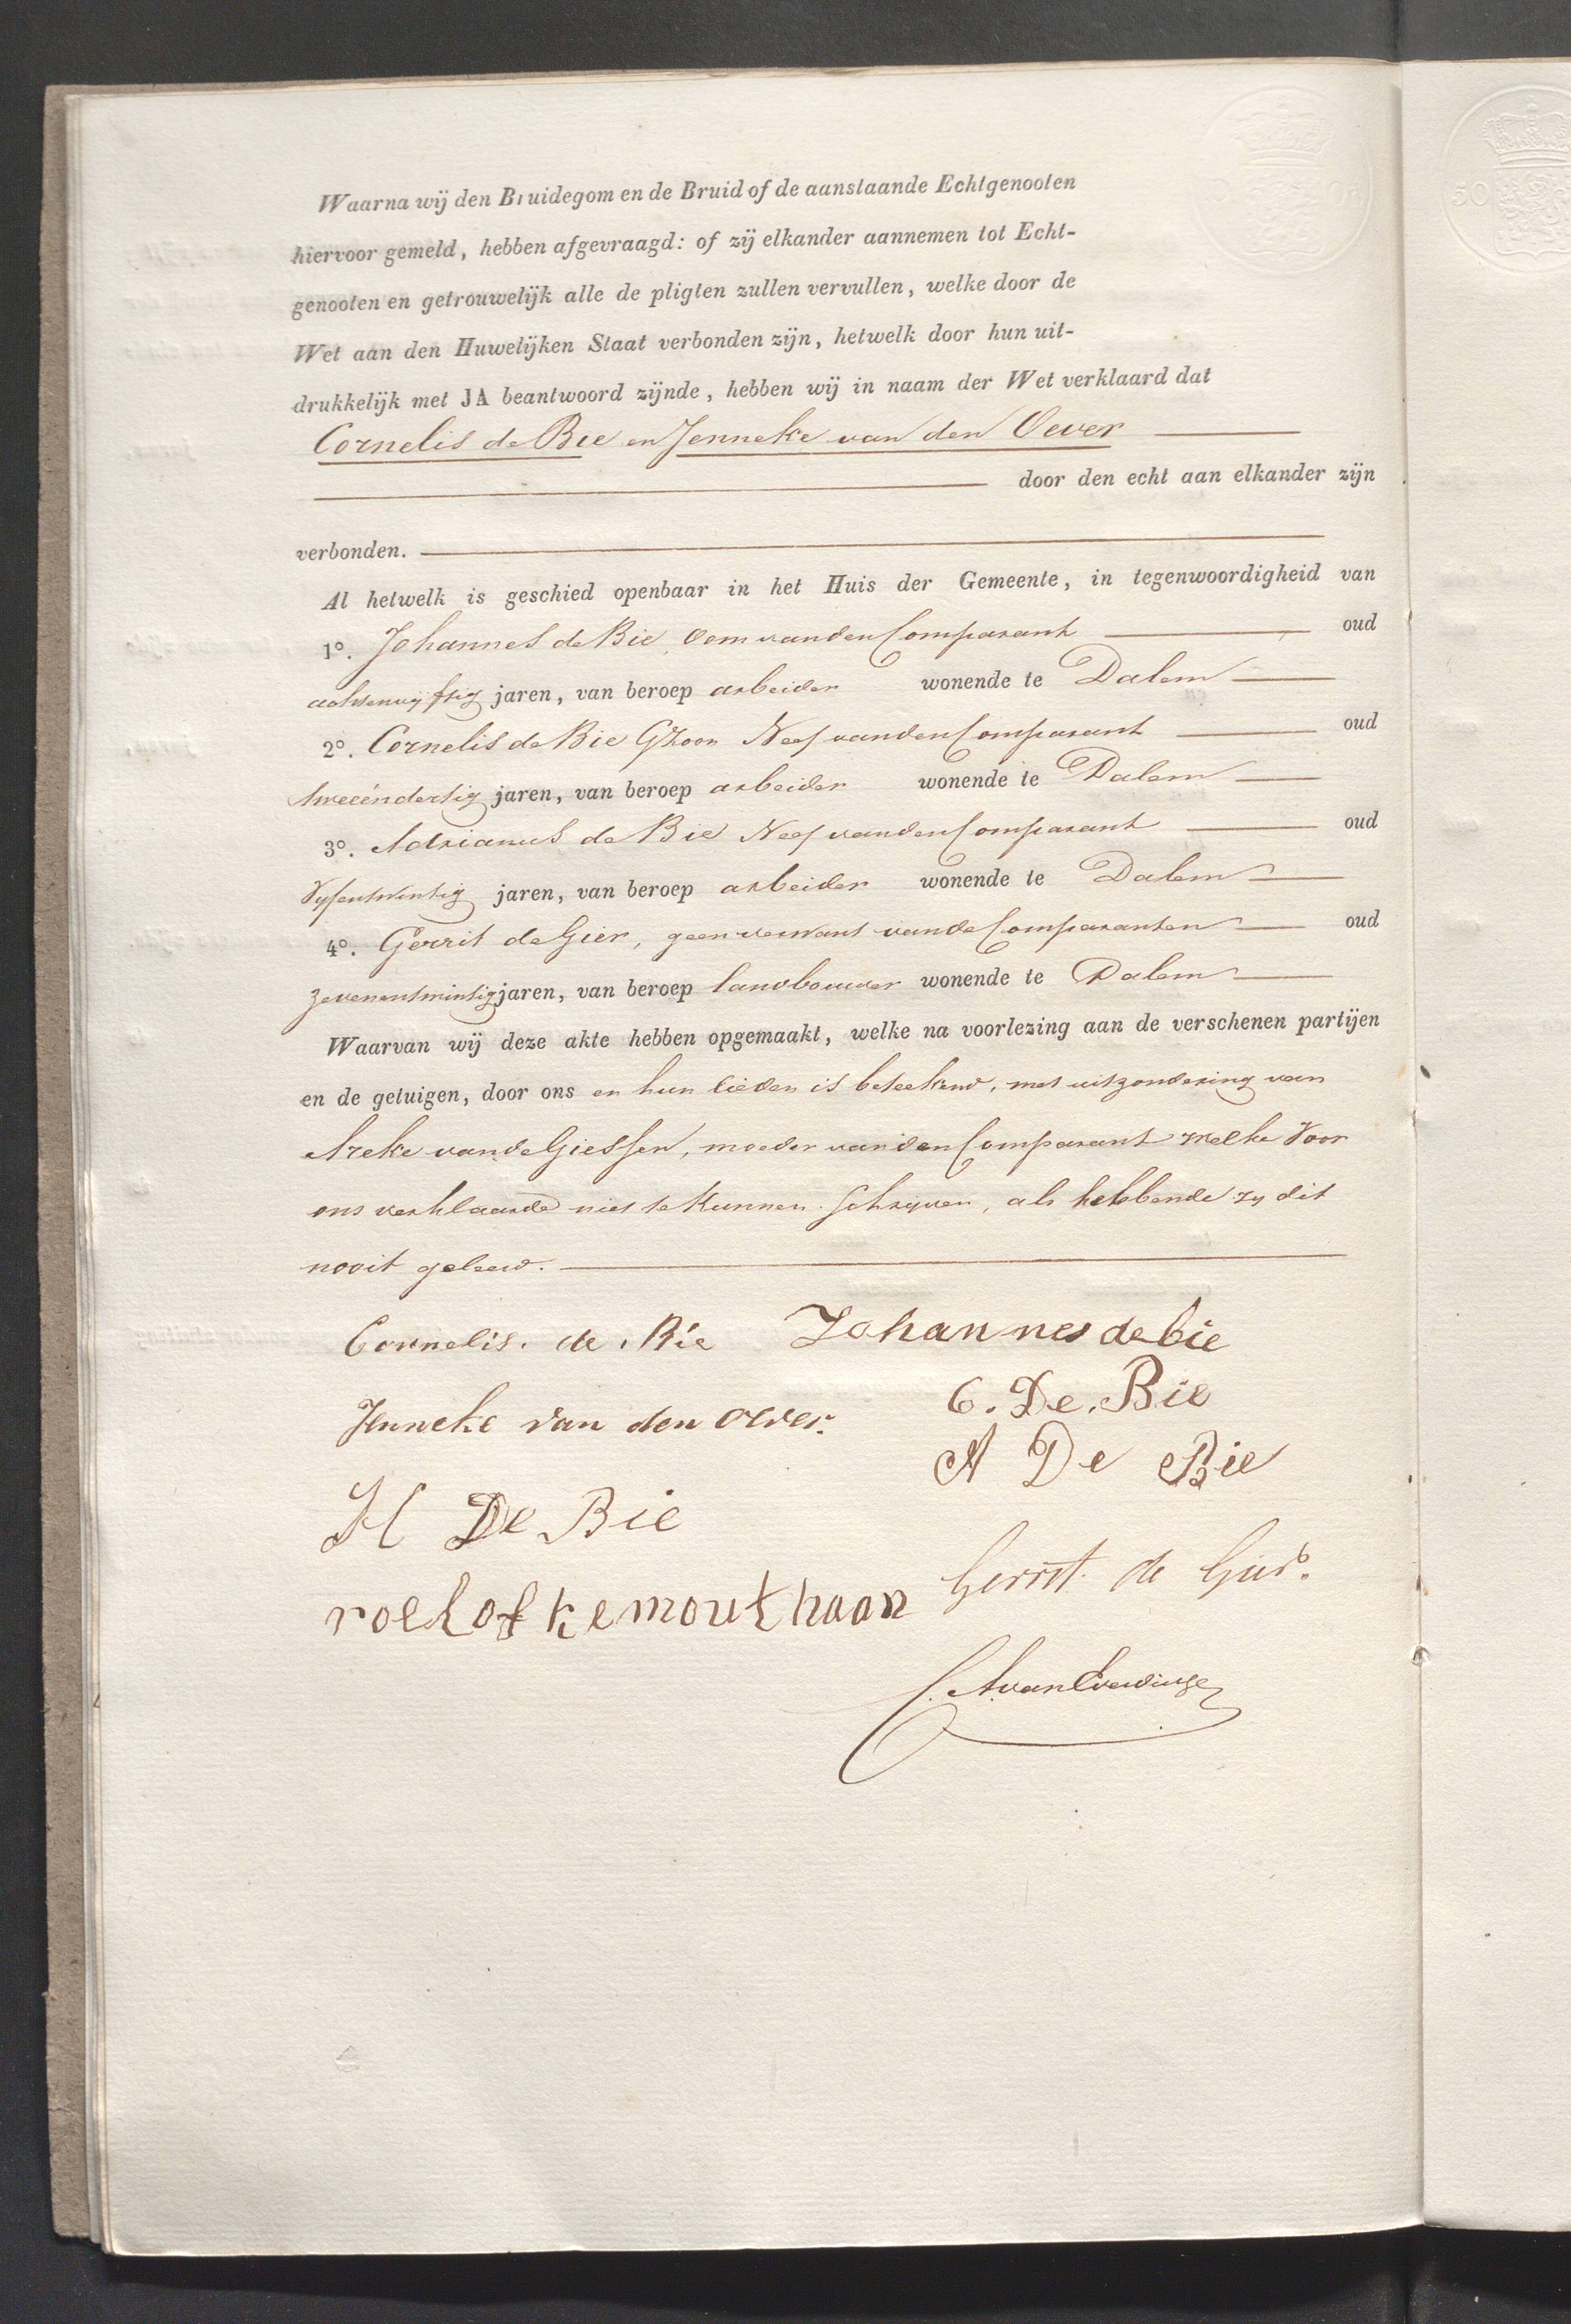 Waarna wij den Bruidegom en de Bruid of de aanstaande Echtgenooten
hiervoor gemeld, hebben afgevraagd: of zij elkander aannemen tot Echt-
genooten en getrouwelijk alle de pligten zullen vervullen, welke door de
Wet aan den Huwelijken Staat verbonden zijn, hetwelk door hun uit-
drukkelijk met JA beantwoord zijnde, hebben wij in naam der Wet verklaard dat
Cornelis de Bie en Jenneke van den Oever
door den echt aan elkander zijn
verbonden.
Al hetwelk is geschied openbaar in het Huis der Gemeente, in tegenwoordigheid van
1o. Johannes de Bie, Oom van den Comparant oud
achtenvyftig jaren, van beroep arbeider wonende te Dalem
2o. Cornelis de Bie GZoon Neef van den Comparant oud
tweeëndertig jaren, van beroep arbeider wonende te Dalem
3o. Adrianus de Bie Neef van den Comparant oud
Vyfentwintig jaren, van beroep arbeider wonende te Dalem
4o. Gerrit de Gier, geen verwant van de Comparanten oud
zevenentwintig jaren, van beroep landbouwer wonende te Dalem
Waarvan wij deze akte hebben opgemaakt, welke na voorlezing aan de verschenen partijen
en de getuigen, door ons en hun lieden is beteekend, met uitzondering van
van de Giessen, moeder van den Comparant welke voor
ons verklaarde niet te kunnen schryven, als hebbende zy dit
nooit geleerd.
Cornelis. de. Bie Johannes de bie
Jenneke van den Oever.
C. De. Bie
A De Bie
H De Bie
Gerrit de Gier.
roelof kemouthaan